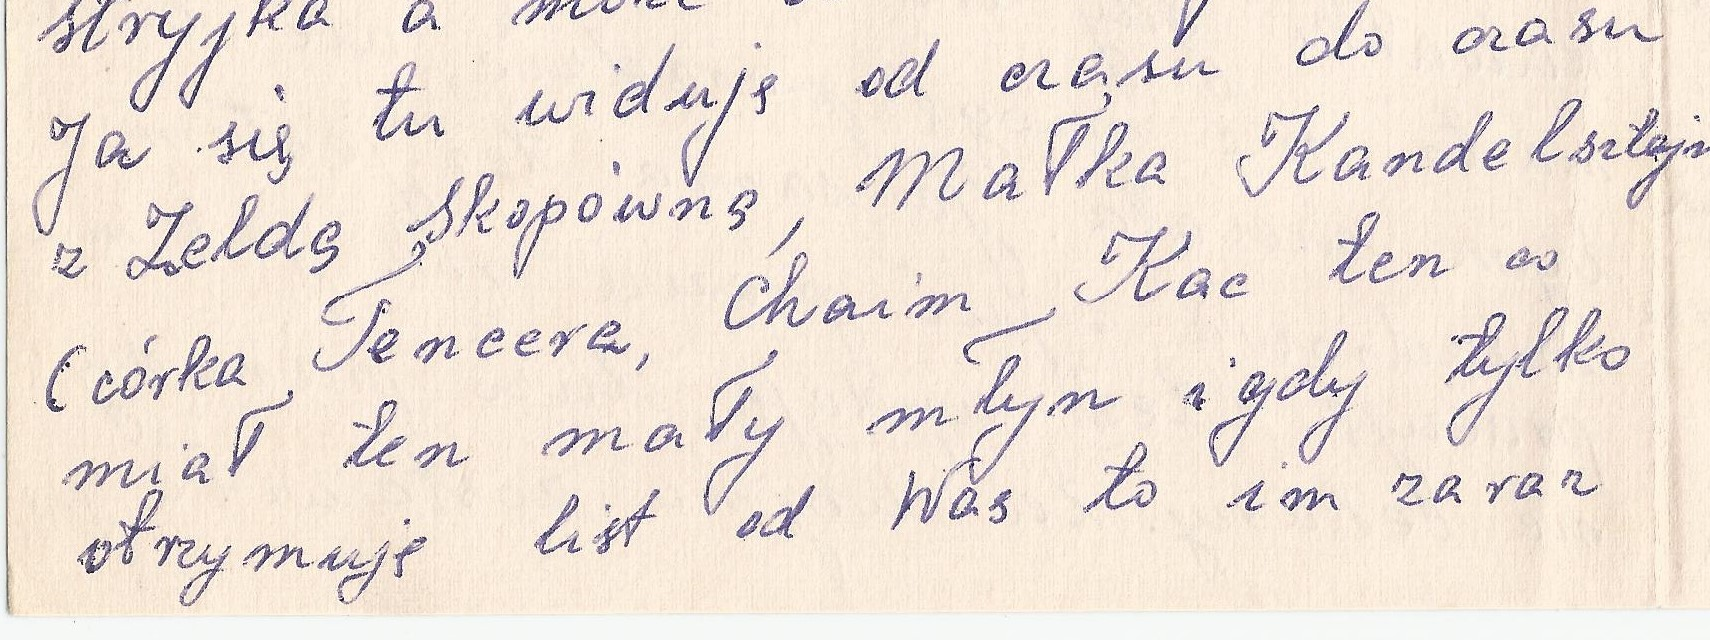 stryjka a może
Ja się tu widuję od czasu do czasu
z Zeldą Skopówną, Małka Kandelsztajn
(córka Tencera, Chaim Kac ten co
miał ten mały młyn i gdy tylko
otrzymuję list od Was to im zaraz